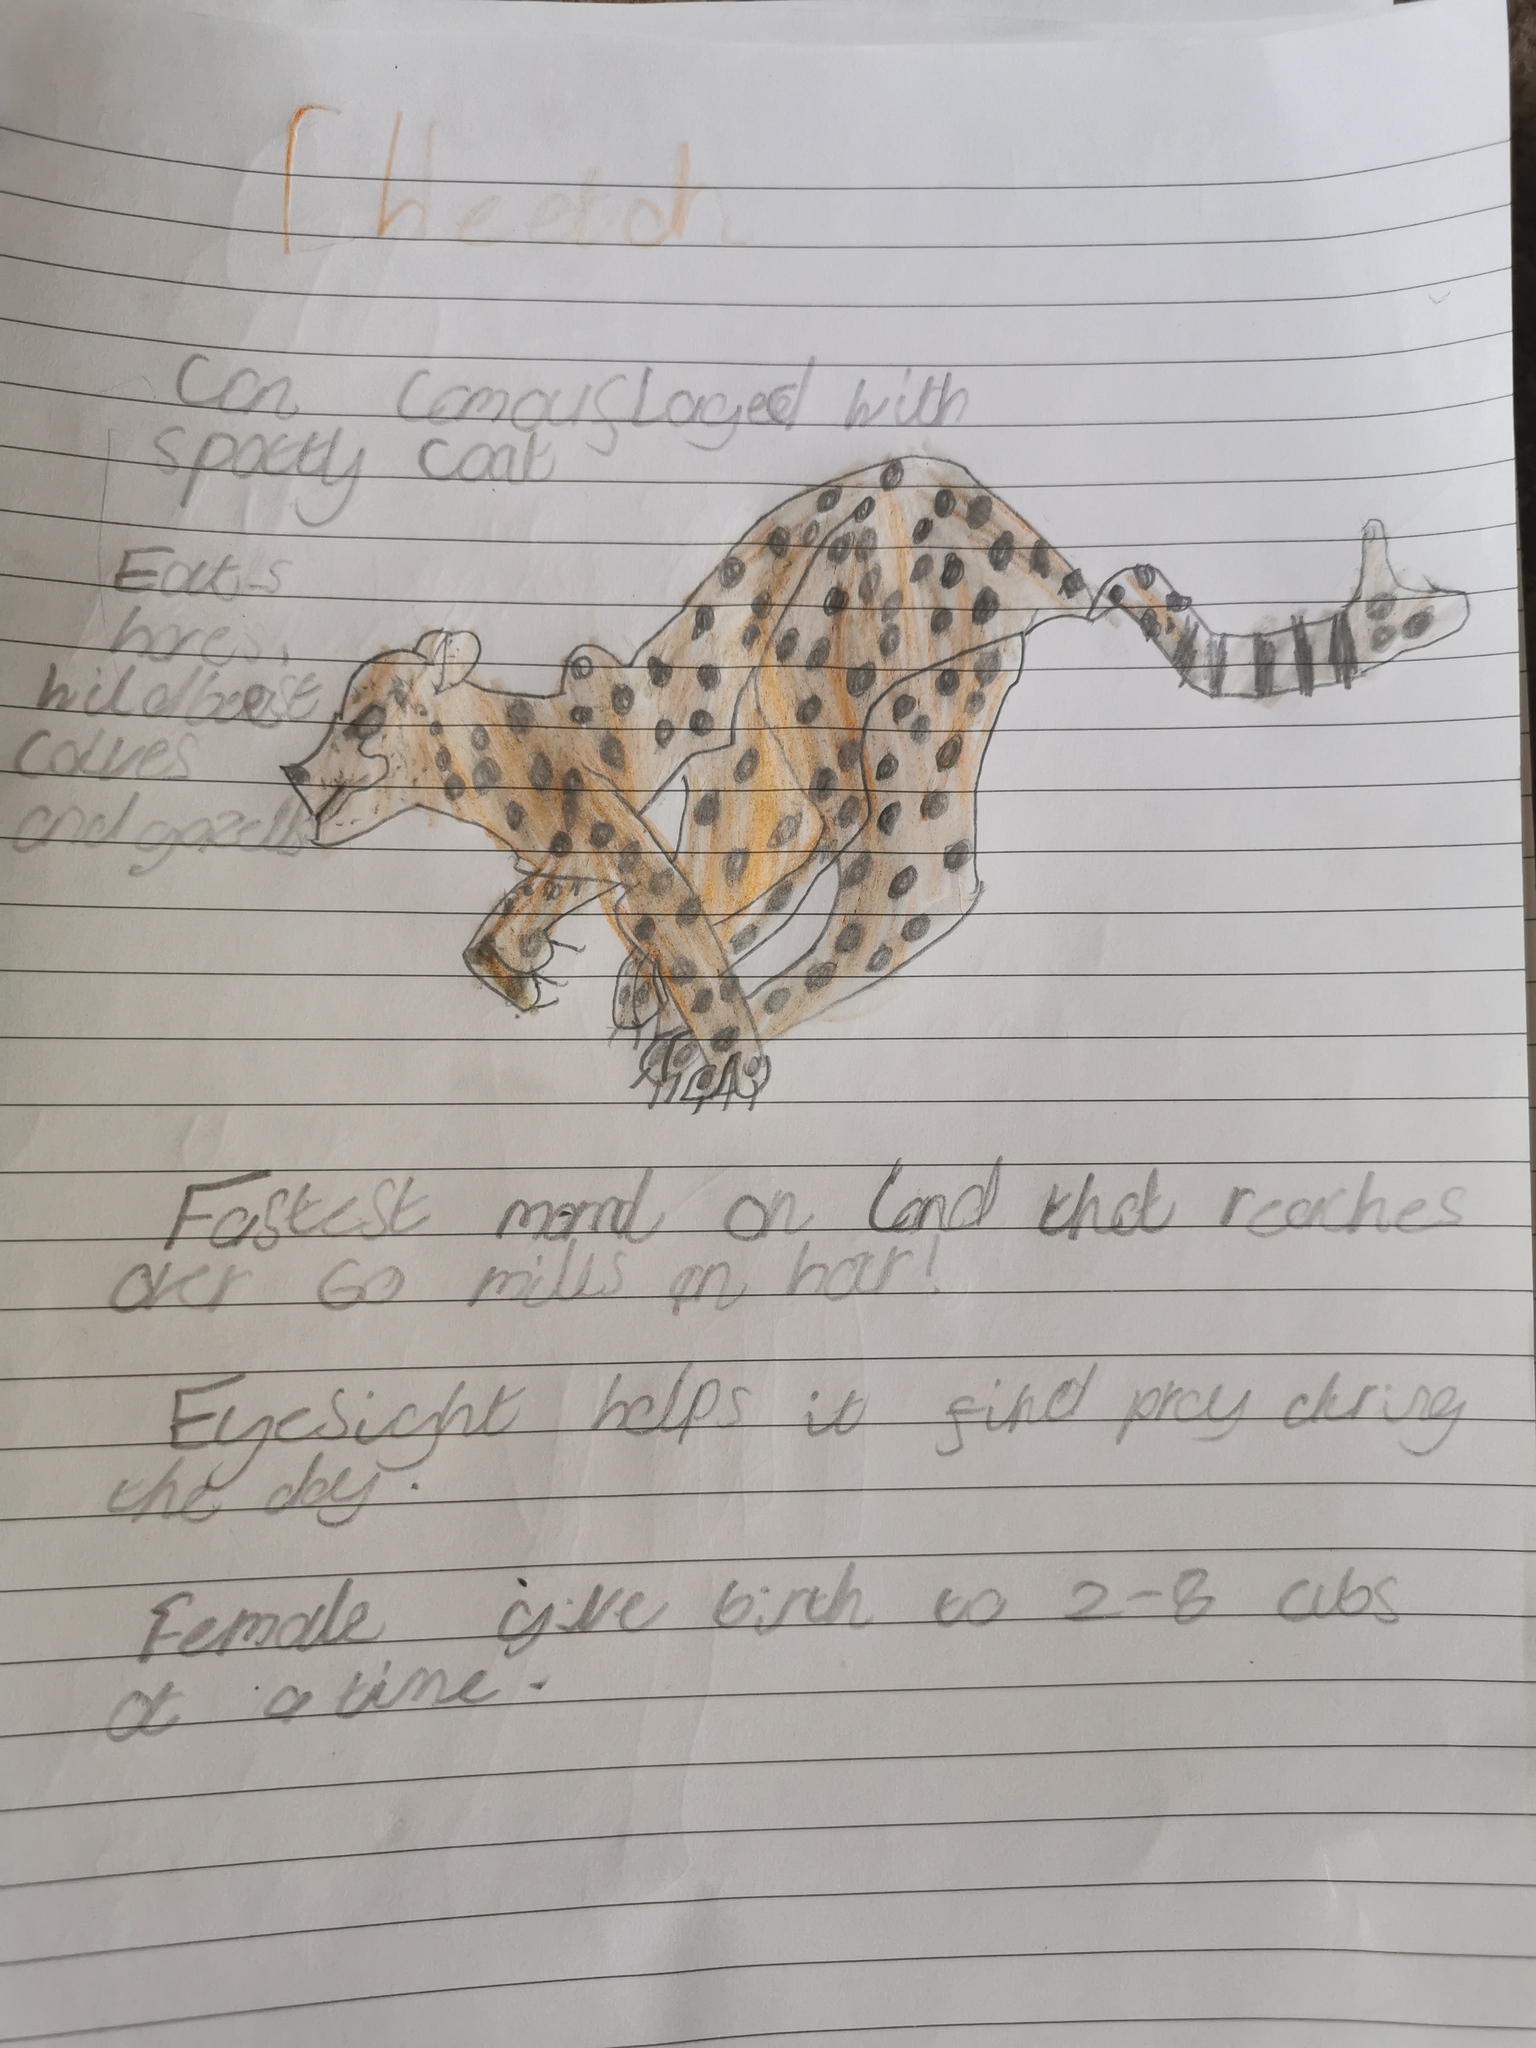 Cheetah
Can camouflaged with
spotty coat
Eats
hares,
wildbeest
calves
and gazells
Fastest maml on land that reaches
over 60 mills an hour!
Eyesight helps it find prey during
the day.
Female give birth to 2-8 cubs
at a time.